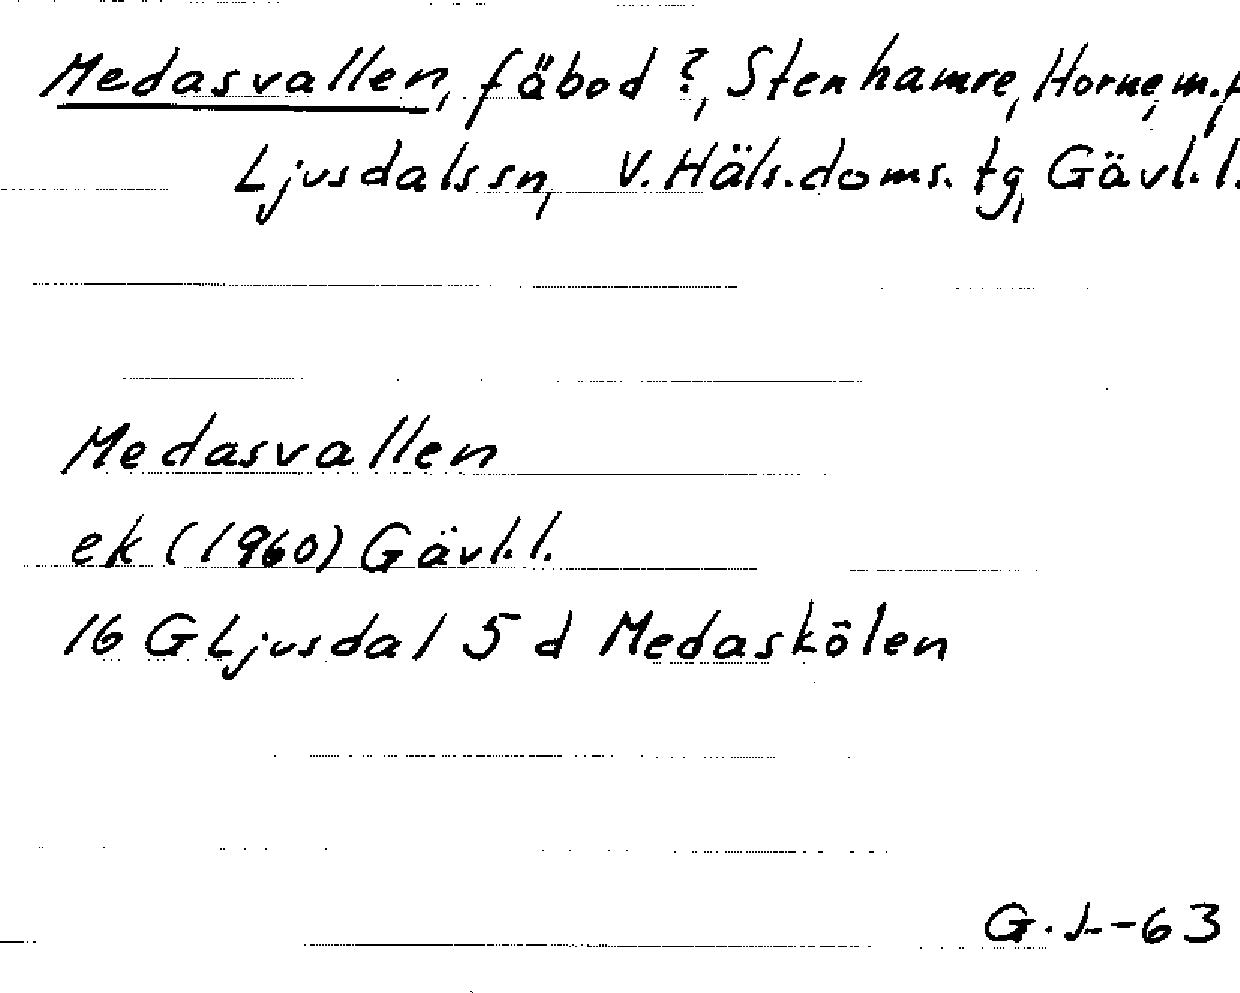 Medasvallen, fäbod ?, Stenhamre, Horne, m.fl.,
Ljusdals sn, V. Häls. doms. tg, Gävl. l.
Medasvallen
ek (1960) Gävl. l.
16 G Ljusdal 5 d Medaskölen
-63